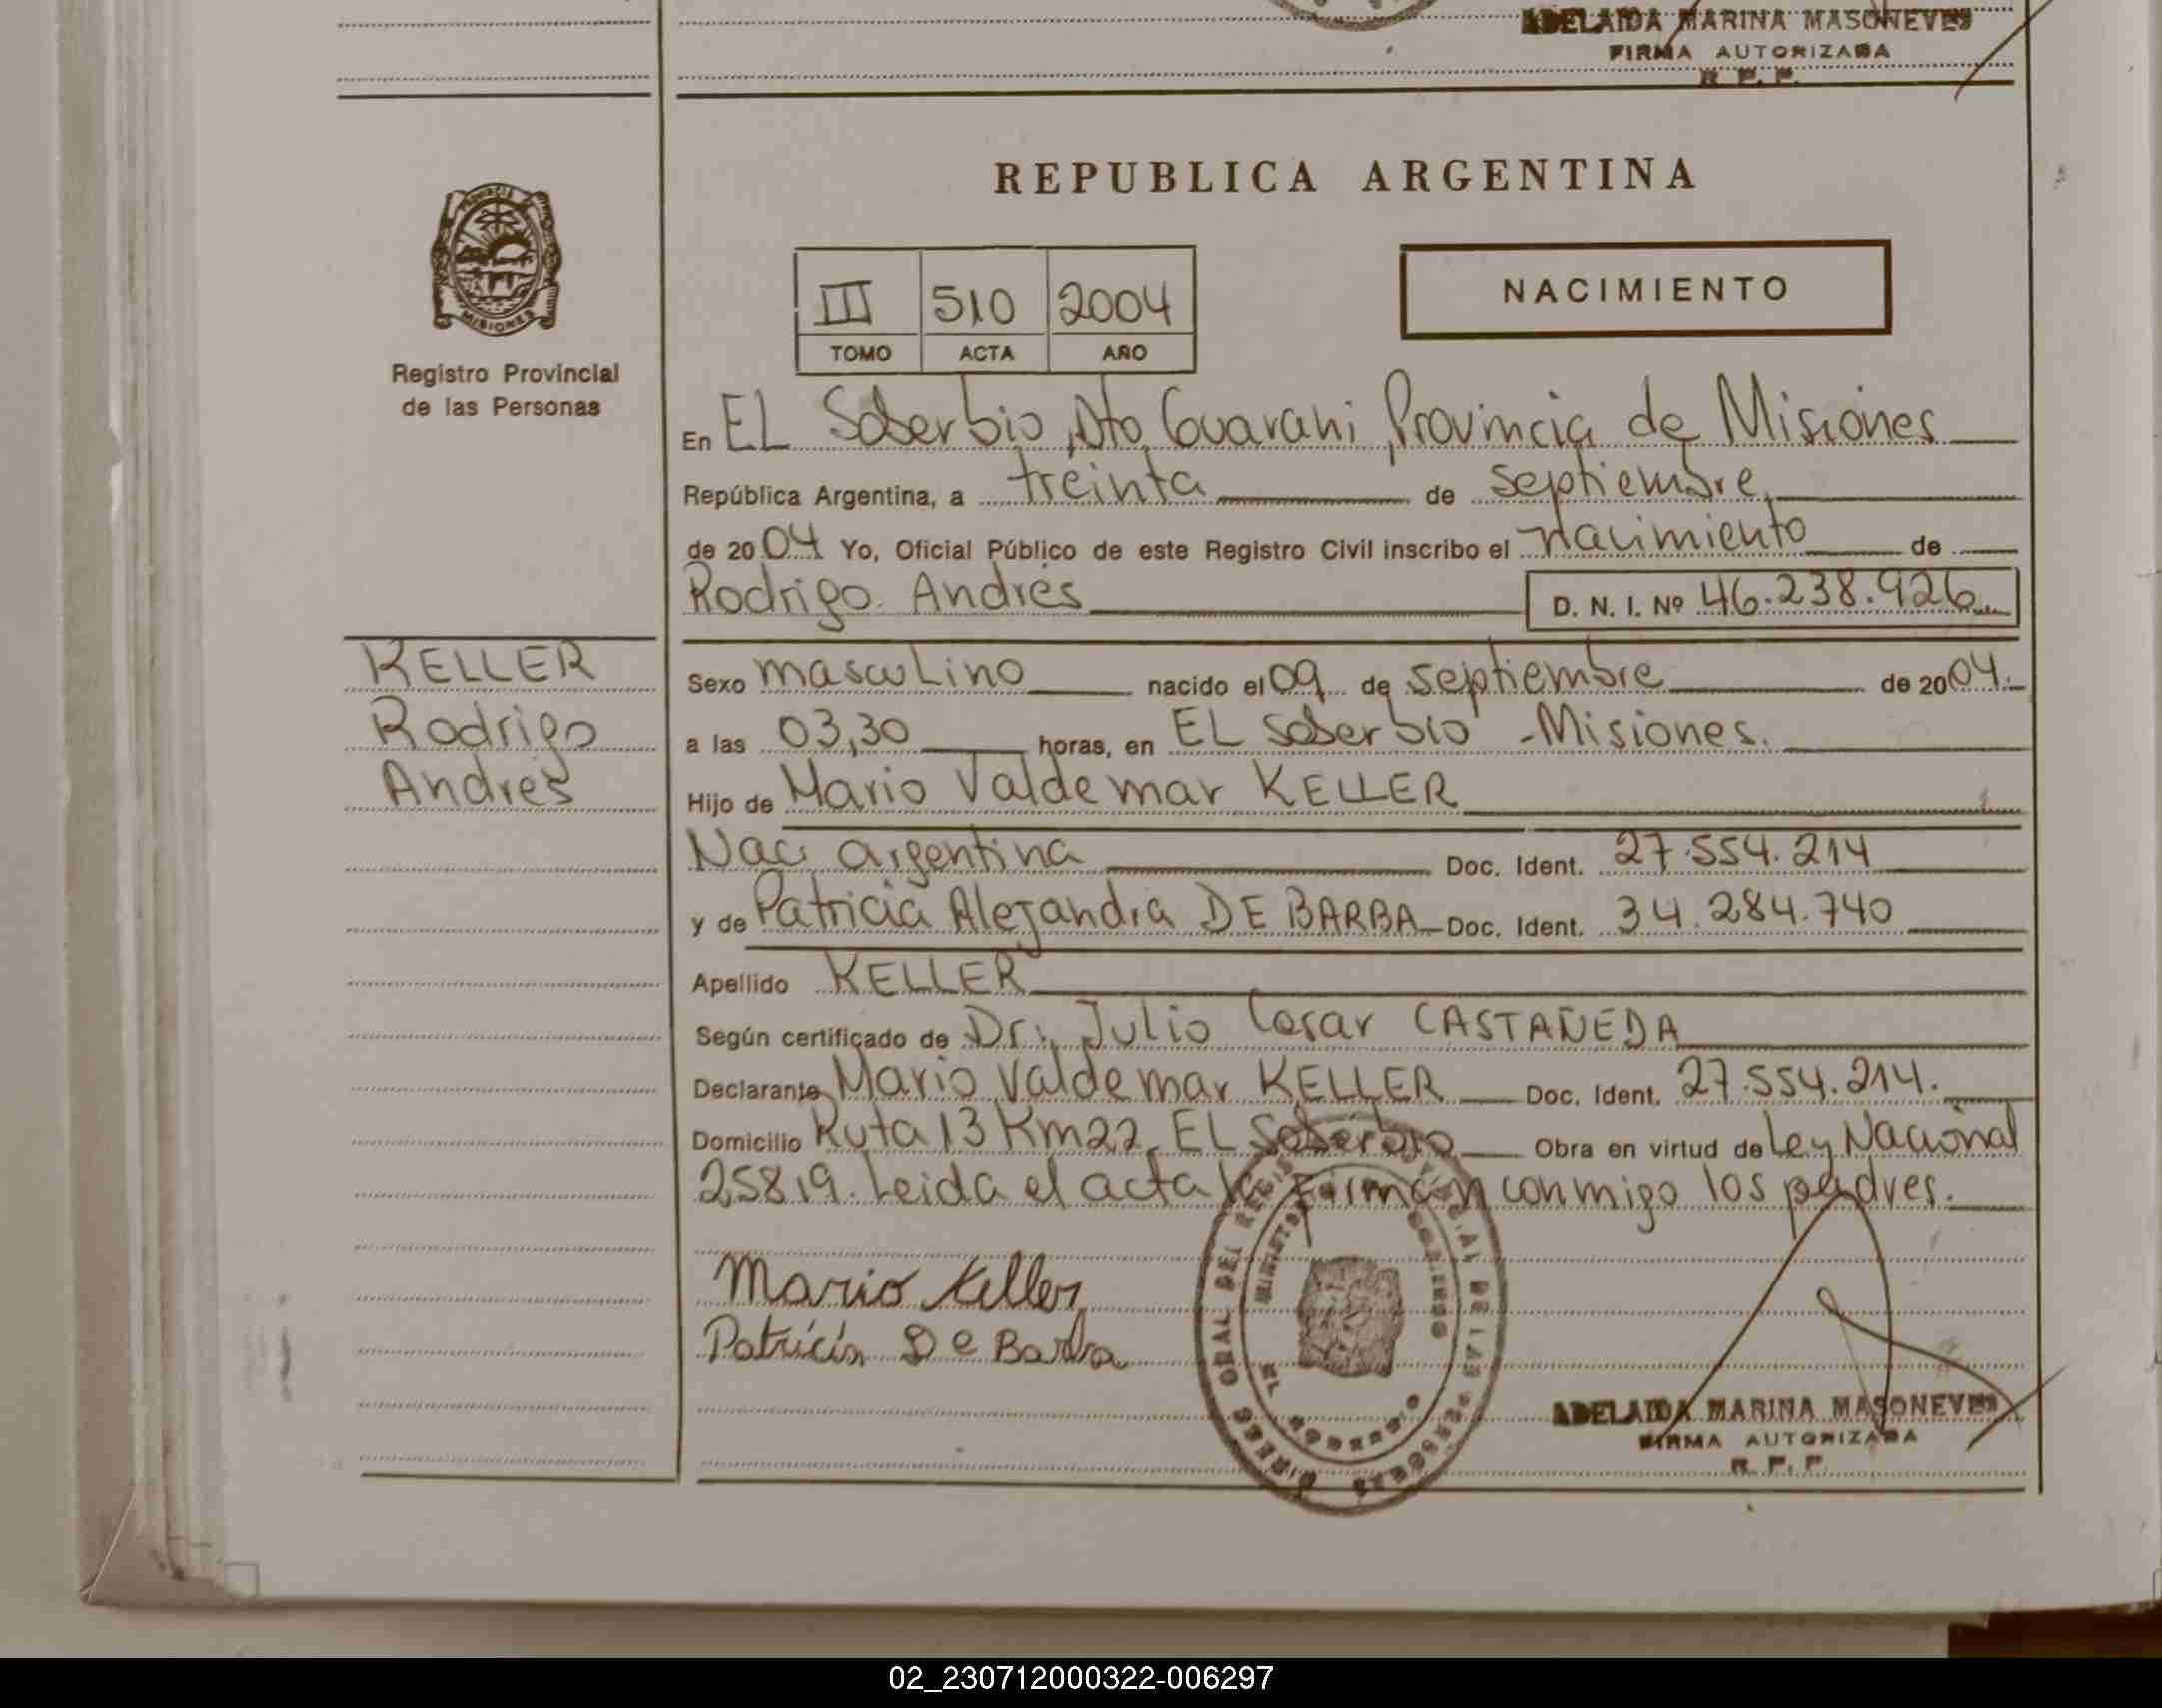 ADELAIDA MARINA MASONEVES
FIRMA AUTORIZADA
R. P. P.
REPUBLICA ARGENTINA
PROVINCIA
MISIONES
Registro Provincial
de las Personas
III 510 2004
TOMO ACTA AÑO
NACIMIENTO
En EL Soberbio, Dto Guarani, Provincia de Misiones
República Argentina, a treinta de septiembre
de 2004 Yo, Oficial Público de este Registro Civil inscribo el nacimiento de
Rodrigo Andrés D. N. I. Nº 46.238.926
KELLER
Rodrigo
Andrés
Sexo masculino nacido el 09 de septiembre de 2004.
a las 03,30 horas, en EL Soberbio - Misiones.
Hijo de Mario Valdemar KELLER
Nac. argentina Doc. Ident. 27.554.214
y de Patricia Alejandra DE BARBA Doc. Ident. 34.284.740
Apellido KELLER
Según certificado de Dr. Julio Cesar CASTAÑEDA
Declarante Mario Valdemar KELLER Doc. Ident. 27.554.214.
Domicilio Ruta 13 Km 22 EL Soberbio Obra en virtud de Ley Nacional
25819. Leida el acta la Firman conmigo los padres.
Mario Keller
Patricia De Barba
ADELAIDA MARINA MASONEVES
FIRMA AUTORIZADA
R. P. P.
02_230712000322-006297